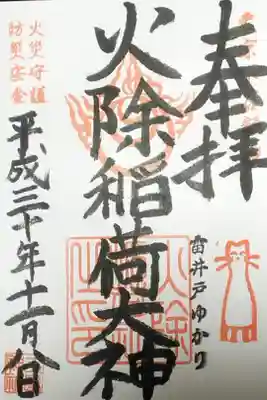 奉拝
雷井戸ゆかり
火除稲荷大神
火除
之印
火災守護
防災安全
平成三十年十一月八日